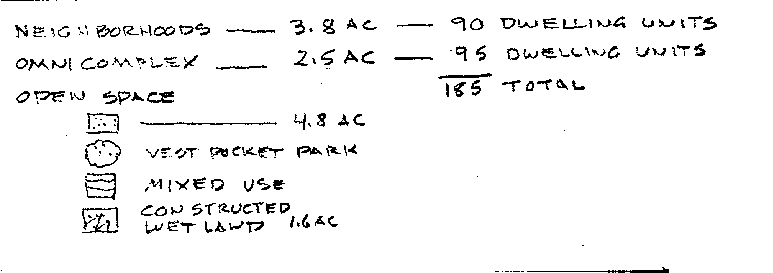 NEIGHBORHOODS — 3.8 AC — 90 DWELLING UNITS
OMNICOMPLEX — 2.5 AC — 95 DWELLING UNITS
185 TOTAL
OPEN SPACE
— 4.8 AC
VEST POCKET PARK
MIXED USE
CONSTRUCTED
WETLAND 1.6 AC